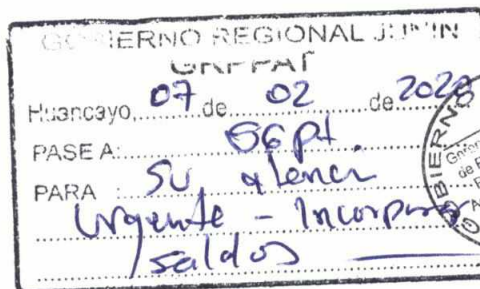 GOBIERNO REGIONAL JUNIN
GRPPAT
Huancayo, 07 de 02 de 2020
PASE A: SGPt.
PARA : Su atenci
Urgente - Incorporar
saldos
GOBIERNO